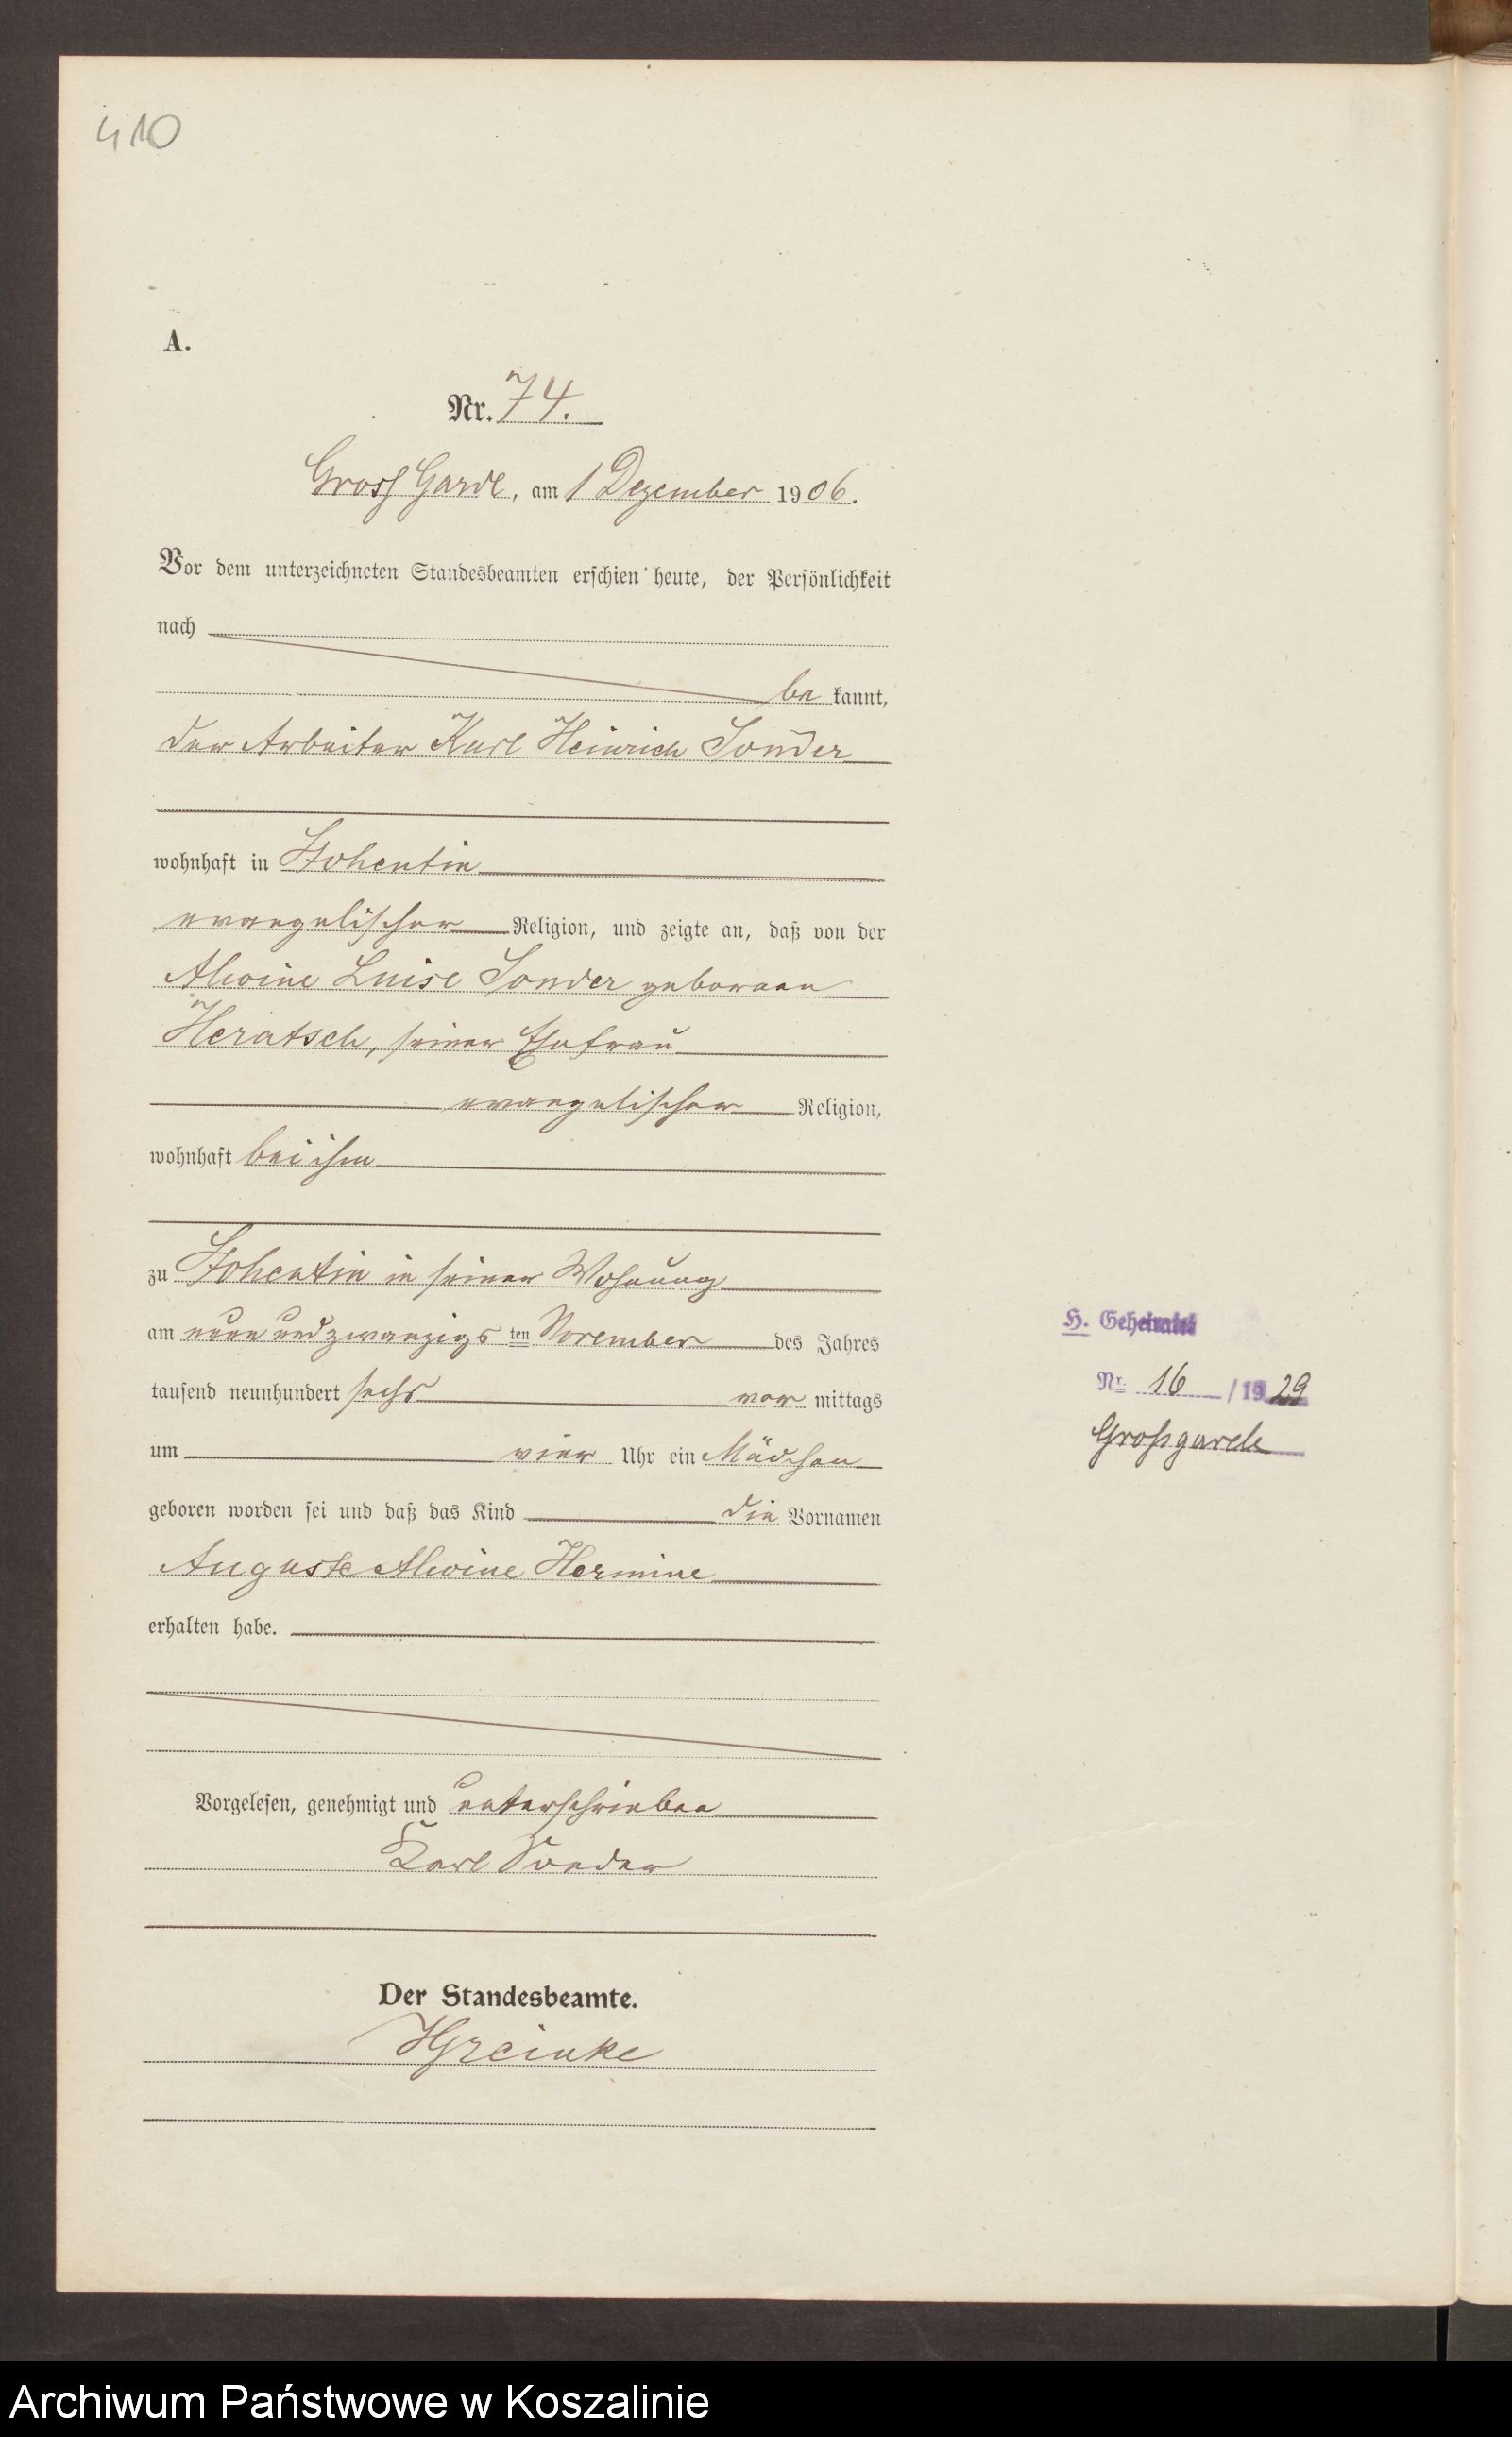 410
A.
Nr. 74.
Gross Garde, am 1 Dezember 1906.
Vor dem unterzeichneten Standesbeamten erschien heute, der Persönlichkeit
nach
be kannt,
der Arbeiter Karl Heinrich Sonder
wohnhaft in Stohentin
evangelischer Religion, und zeigte an, daß von der
Alwine Luise Sonder geborenen
Heratsch, seiner Ehefrau
evangelischer Religion,
wohnhaft bei ihm
zu Stohentin in seiner Wohnung
am neun und zwanzigs ten November des Jahres
tausend neunhundert sechs vor mittags
um vier Uhr ein Mädchen
geboren worden sei und daß das Kind die Vornamen
Auguste Alwine Hermine
erhalten habe.
Vorgelesen, genehmigt und unterschrieben
Karl Sonder
Der Standesbeamte.
H. Geheiratet
Nr. 16 / 1929
Großgarde
Archiwum Państwowe w Koszalinie